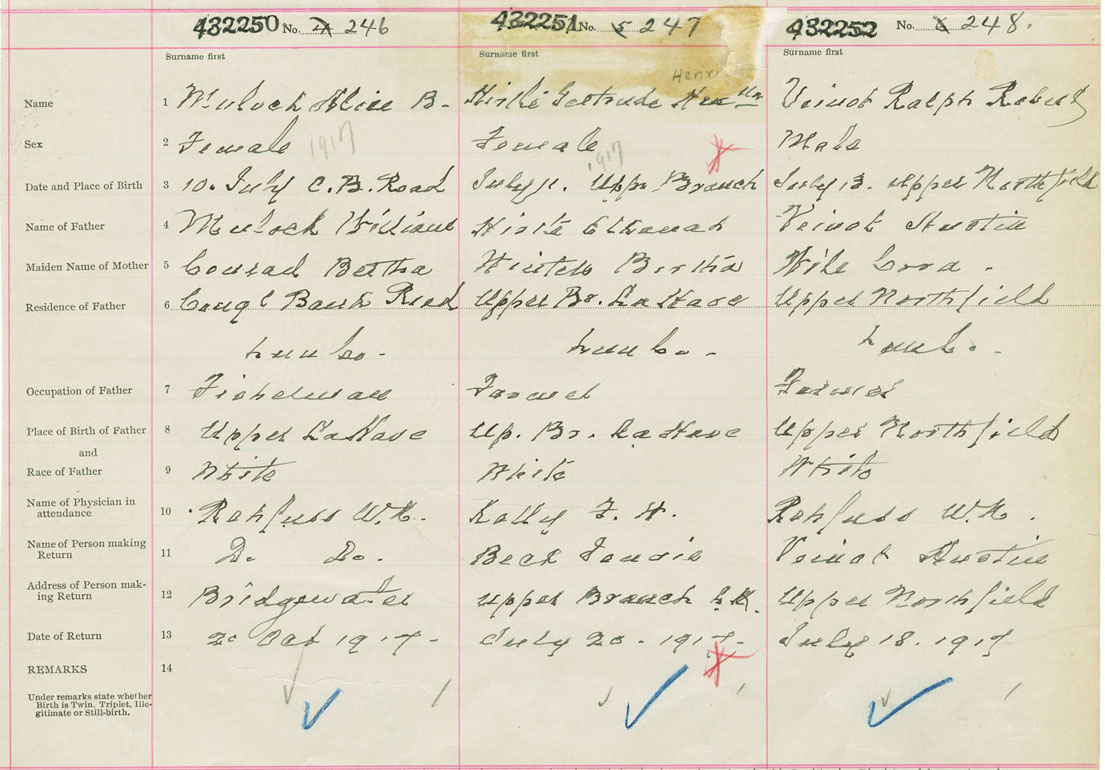 432250 No. 246
432251 No. 5 247
432252 No. 248.
Surname first
Surname first
Surname first
Henri
Name 1 Mulock Alice B- Hirtle Gertrude Veinot Ralph Robert
Sex 2 Female Female Male
1917 1917
Date and Place of Birth 3 10. July C.B. Road July 11. Upp. Branch July 13. Upper Northfield
Name of Father 4 Mulock William Hirtle Elkanah Veinot Austin
Maiden Name of Mother 5 Conrad Bertha Bertha Wile Cora.
Residence of Father 6 Conq'l Bank Road Upper Br. LaHave Upper Northfield
Lun Co. Lun Co. Lun Co.
Occupation of Father 7 Fisherman Farmer Farmer
Place of Birth of Father 8 Upper LaHave Up. Br. LaHave Upper Northfield
and
Race of Father 9 White White White
Name of Physician in
attendance 10 Rehfuss W.N. Kelly F. H. Rehfuss W.N.
Name of Person making
Return 11 Do. Do. Beck Veinot Austin
Address of Person mak-
ing Return 12 Bridgewater Upper Branch L.H. Upper Northfield
Date of Return 13 2 Oct 1917- July 20. 1917- July 18. 1917
REMARKS 14
Under remarks state whether
Birth is Twin, Triplet, Ille-
gitimate or Still-birth.